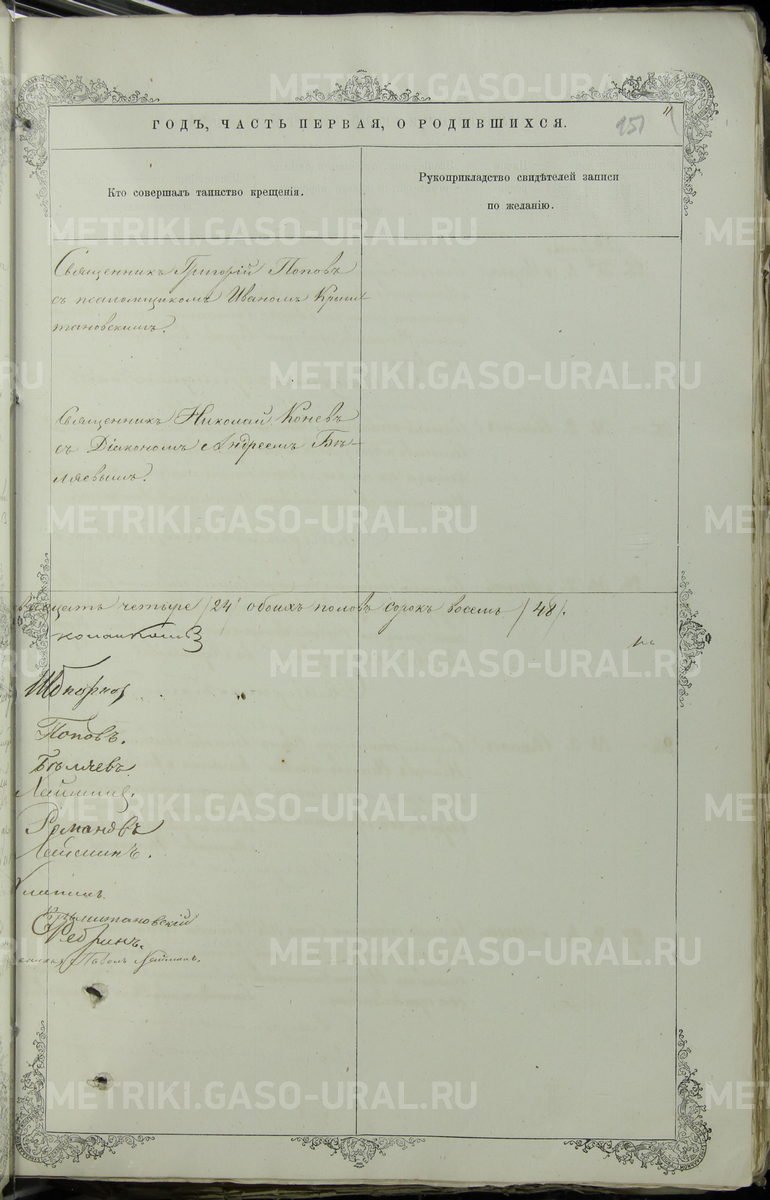 ГОДЪ, ЧАСТЬ ПЕРВАЯ, О РОДИВШИХСЯ.
951
Кто совершалъ таинство крещенія.
Рукоприкладство свидѣтелей записи
по желанію.
Священникъ Григорій Поповъ
съ псаломщикомъ Иваномъ Крыш-
тановскимъ.
Священникъ Николай Коневъ
съ Діакономъ Андреемъ Бѣ-
ляевымъ.
четыре /24/ обоихъ половъ сорокъ восемь /48/.
Поповъ.
Бѣляевъ
Романовъ
Крыштановскій
Ребринъ.
METRIKI.GASO-URAL.RU